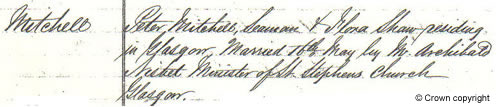 Mitchell
Peter Mitchell, Seaman & Flora Shaw residing
in Glasgow, Married 16th May by Mr. Archibald
Nisbet Minister of St. Stephens Church
Glasgow.
© Crown copyright